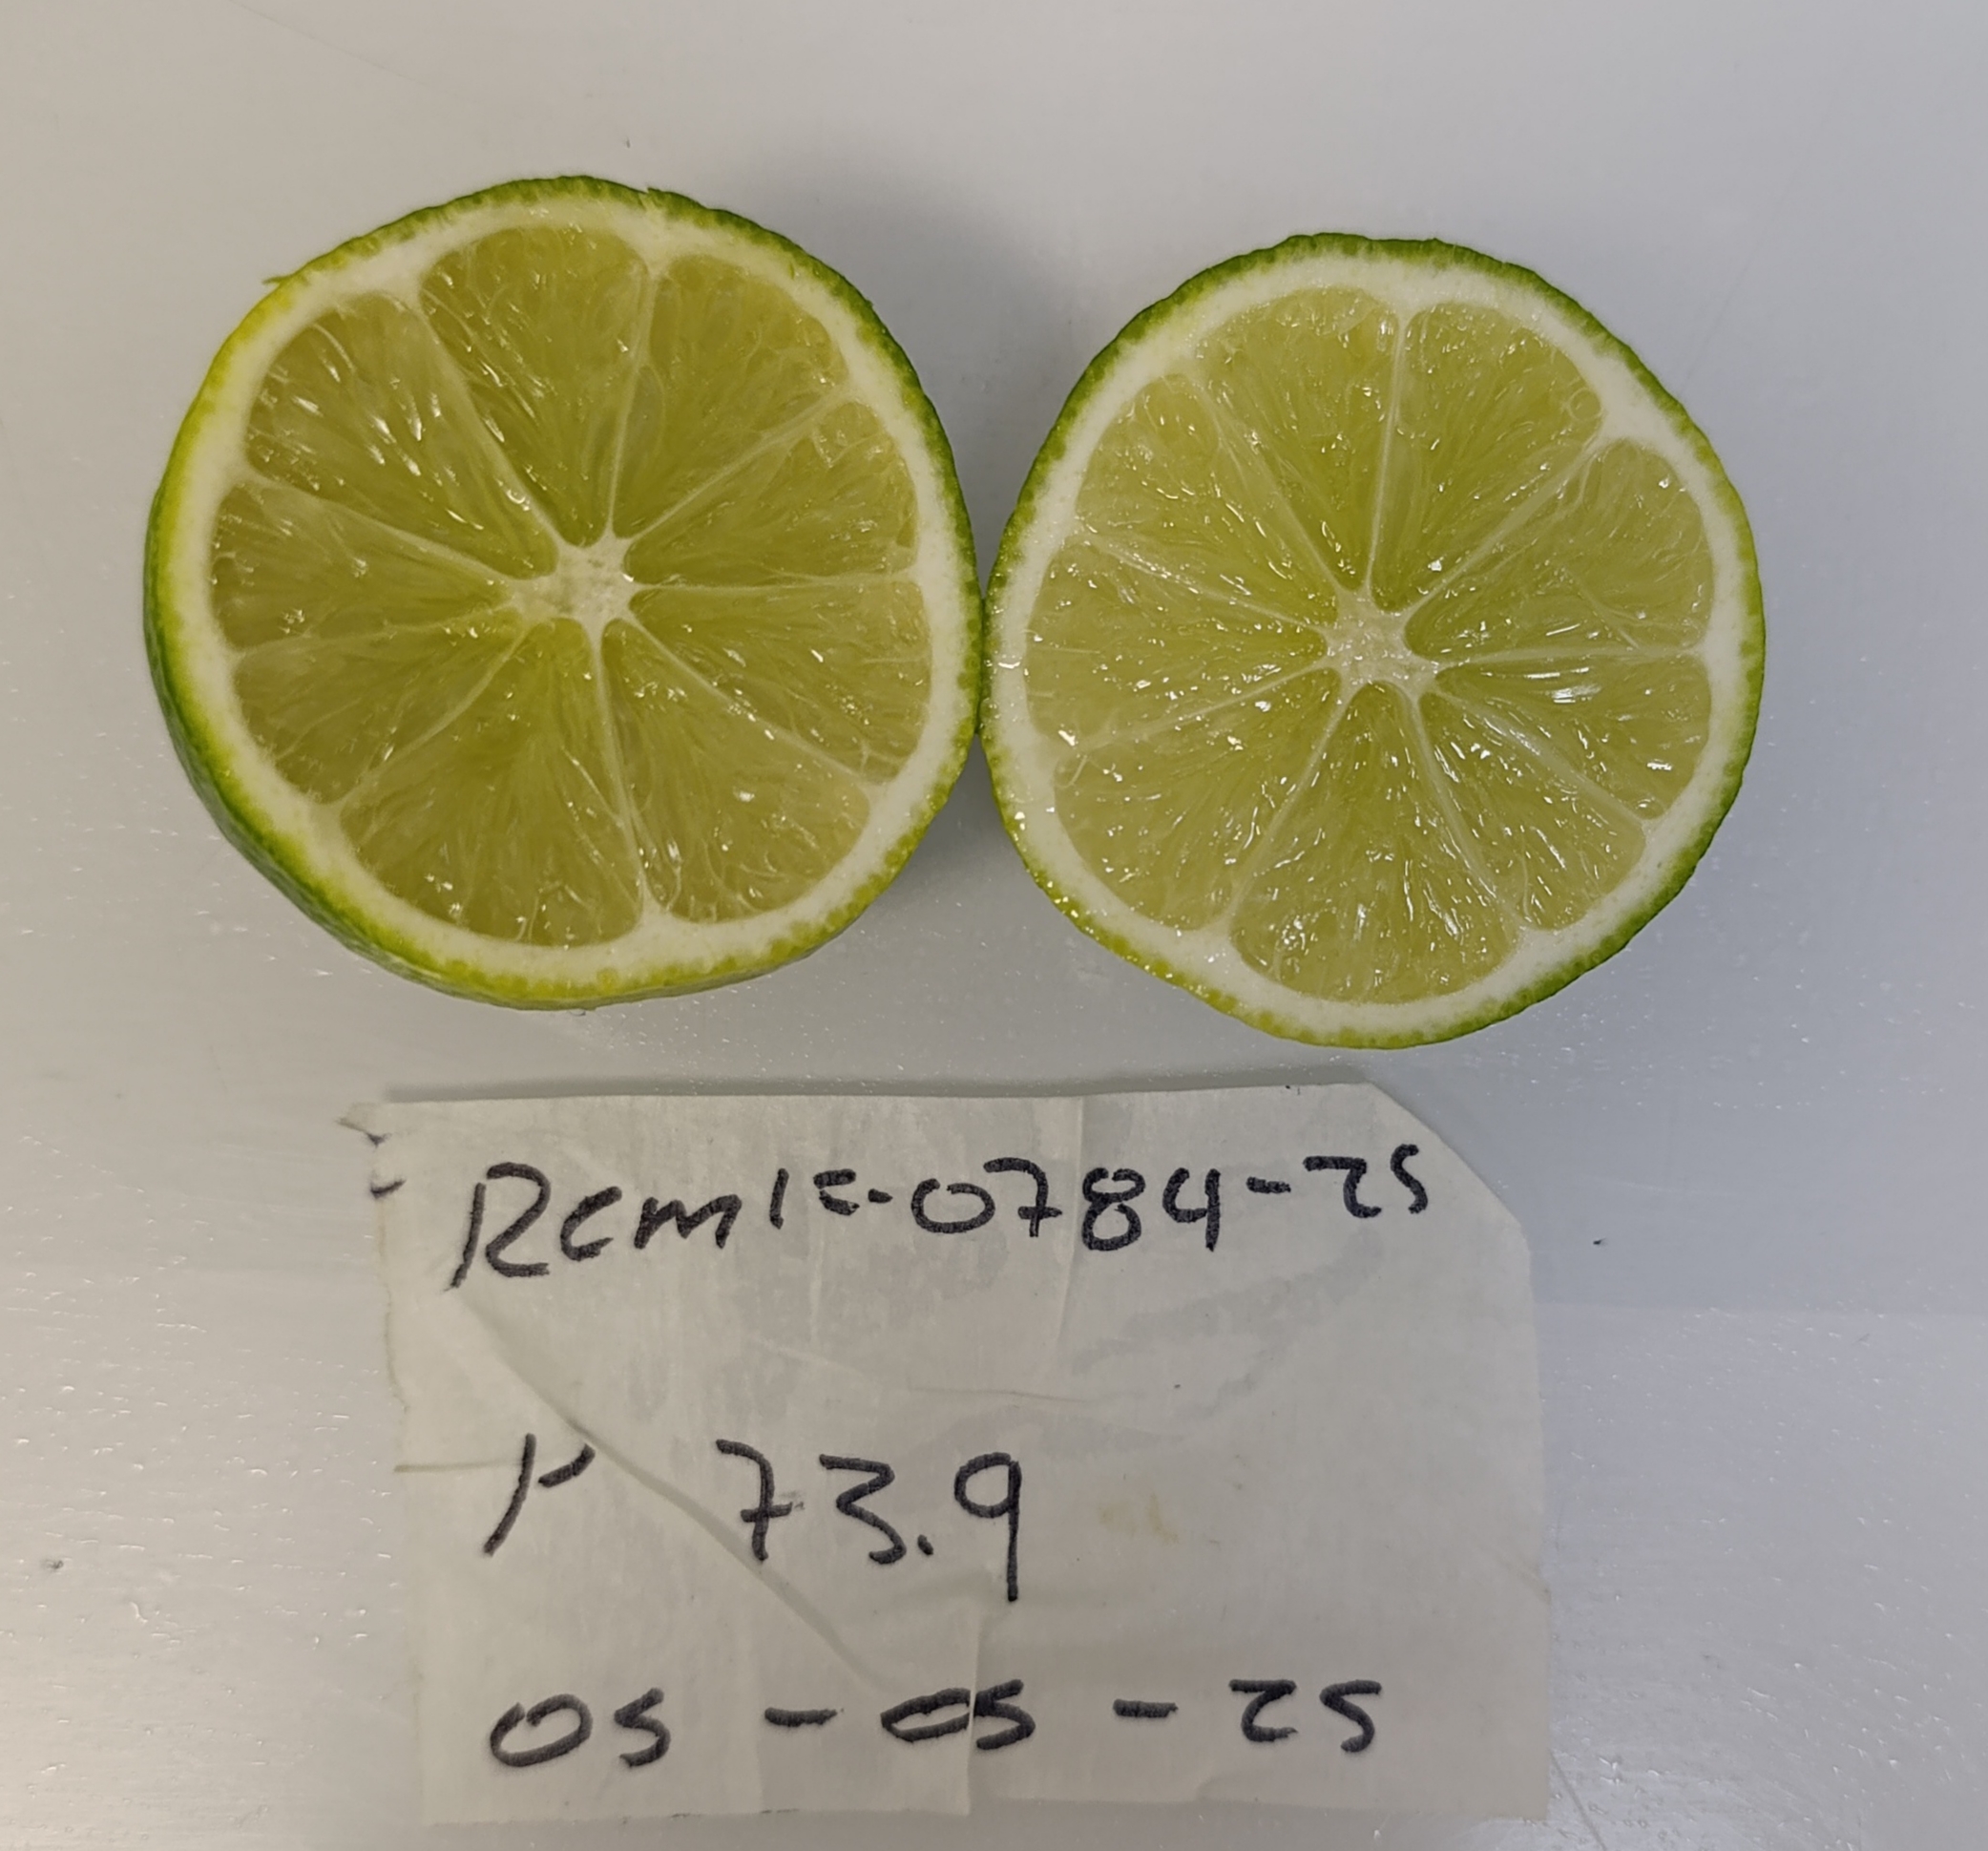 RcmIE-0784-25
r 73.9
05-05-25